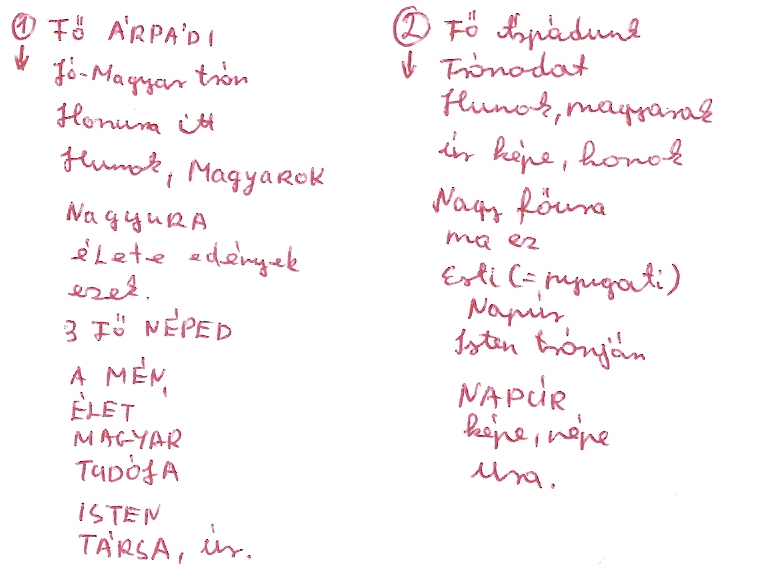 ① FŐ ÁRPÁDI
↓ Jó-Magyar trón
Honura itt
Hunok, MAGYAROK
NAGYURA
éLete edények
ezek.
3 FŐ NÉPED
A MÉN,
ÉLET
MAGYAR
TUDÓJA
ISTEN
TÁRSA, úr.
② Fő Árpádunk
↓ Trónodat
Hunok, magyarok
úr képe, honok
Nagy főura
ma ez
Esti (= nyugati)
Napúr
Isten trónján
NAPÚR
képe, népe
Ura.